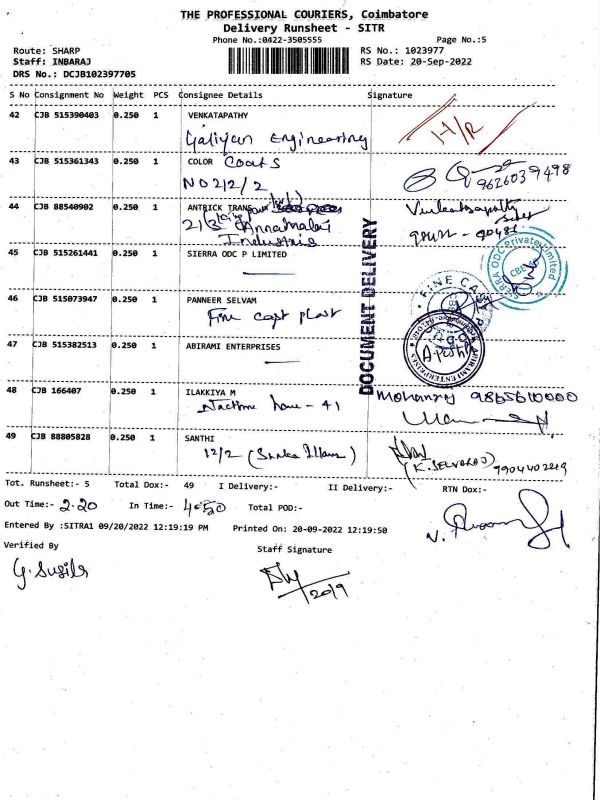 THE PROFESSIONAL COURIERS, Coimbatore
Delivery Runsheet - SITR
Phone No.:0422-3505555
Page No.:5
Route: SHARP
RS No.: 1023977
Staff: INBARAJ
RS Date: 20-Sep-2022
DRS No.: DCJB102397705
S No Consignment No Weight PCS Consignee Details Signature
42 CJB 515390403 0.250 1 VENKATAPATHY
Engineering
H/R
43 CJB 515361343 0.250 1 COLOR Coats
NO 2/2/2
9626039498
44 CJB 88540902 0.250 1 ANTRICK TRANS
Annamalai
Industries
45 CJB 515261441 0.250 1 SIERRA ODC P LIMITED
SIERRA ODC Private Limited
CBE
DOCUMENT DELIVERY
46 CJB 515073947 0.250 1 PANNEER SELVAM
Fine cast plast
FINE CA
47 CJB 515382513 0.250 1 ABIRAMI ENTERPRISES
ABIRAMI ENTERPRISES
48 CJB 166407 0.250 1 ILAKKIYA M
- 41
49 CJB 88805828 0.250 1 SANTHI
12/2
(K. SELVARAJ)
Tot. Runsheet:- 5 Total Dox:- 49 I Delivery:- II Delivery:- RTN Dox:-
Out Time:- 2.20 In Time:- 4.50 Total POD:-
Entered By :SITRA1 09/20/2022 12:19:19 PM Printed On: 20-09-2022 12:19:50
Verified By
Staff Signature
20/9